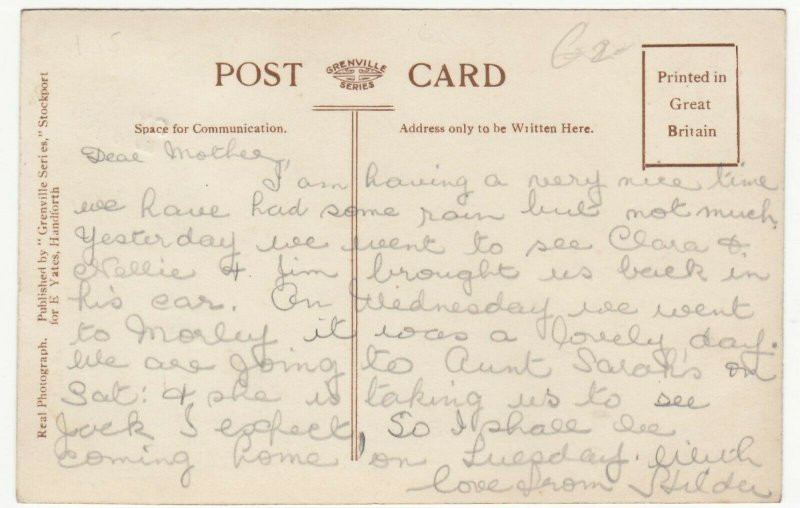 POST CARD
GRENVILLE
SERIES
Printed in
Great
Britain
Space for Communication.
Address only to be Written Here.
Real Photograph. Published by "Grenville Series," Stockport
for E Yates, Handforth
Dear Mother,
I am having a very nice time
we have had some rain but not much.
Yesterday we went to see Clara &
Nellie & Jim brought us back in
his car. On Wednesday we went
to Morley it was a lovely day.
We are going to Aunt Sarah's on
Sat: & she is taking us to see
Jack I expect, So I shall be
coming home on Tuesday. With
love from Hilda